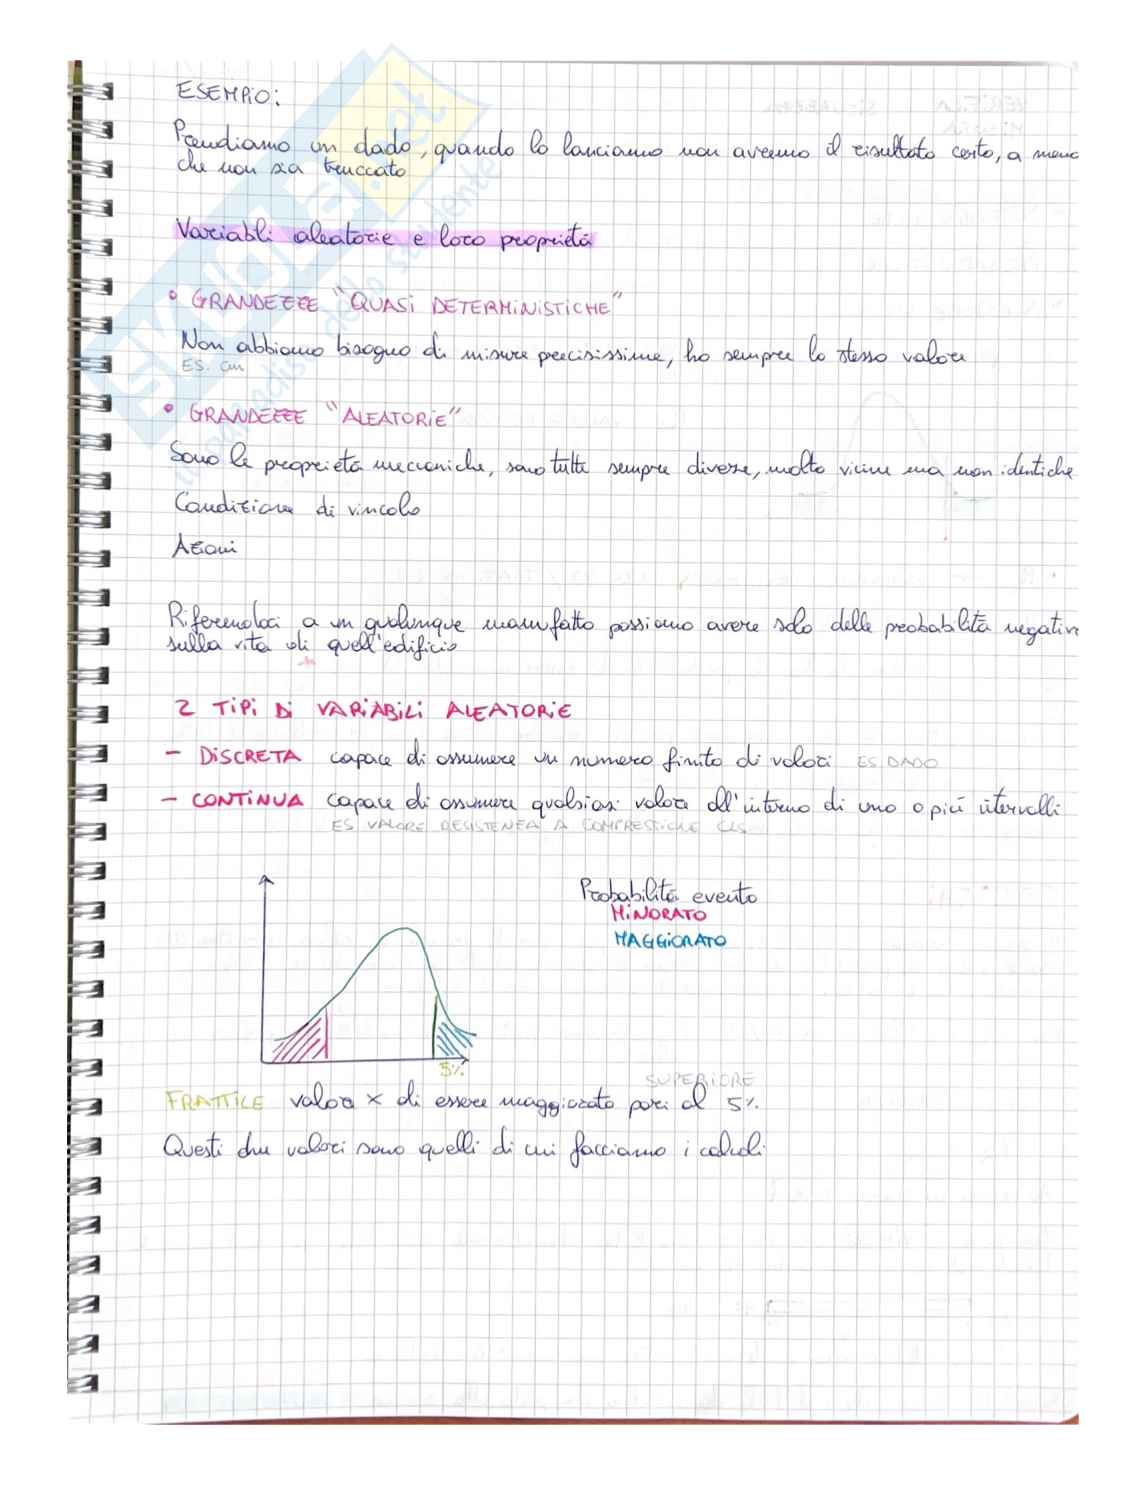 ESEMPIO:
Prendiamo un dado, quando lo lanciamo non avremo il risultato certo, a meno
che non sia truccato
Variabli aleatorie e loro proprietà
• GRANDEZZE "QUASI DETERMINISTICHE"
Non abbiamo bisogno di misure precisissime, ho sempre lo stesso valore
ES. cm
• GRANDEZZE "ALEATORIE"
Sono le proprietà meccaniche, sono tutte sempre diverse, molto vicine ma non identiche
Condizione di vincolo
Azioni
Riferendoci a un qualunque manufatto possiamo avere solo delle probabilità negative
sulla vita di quell'edificio
2 TIPI DI VARIABILI ALEATORIE
- DISCRETA capace di assumere un numero finito di valori ES. DADO
- CONTINUA capace di assumere qualsiasi valore all'interno di uno o più intervalli
ES VALORE RESISTENZA A CLS
Probabilità evento
MINORATO
MAGGIORATO
5%
SUPERIORE
FRATTILE valore x di essere maggiorato pari al 5%
Questi due valori sono quelli di cui facciamo i calcoli
SKUOLA.net
il paradiso dello studente